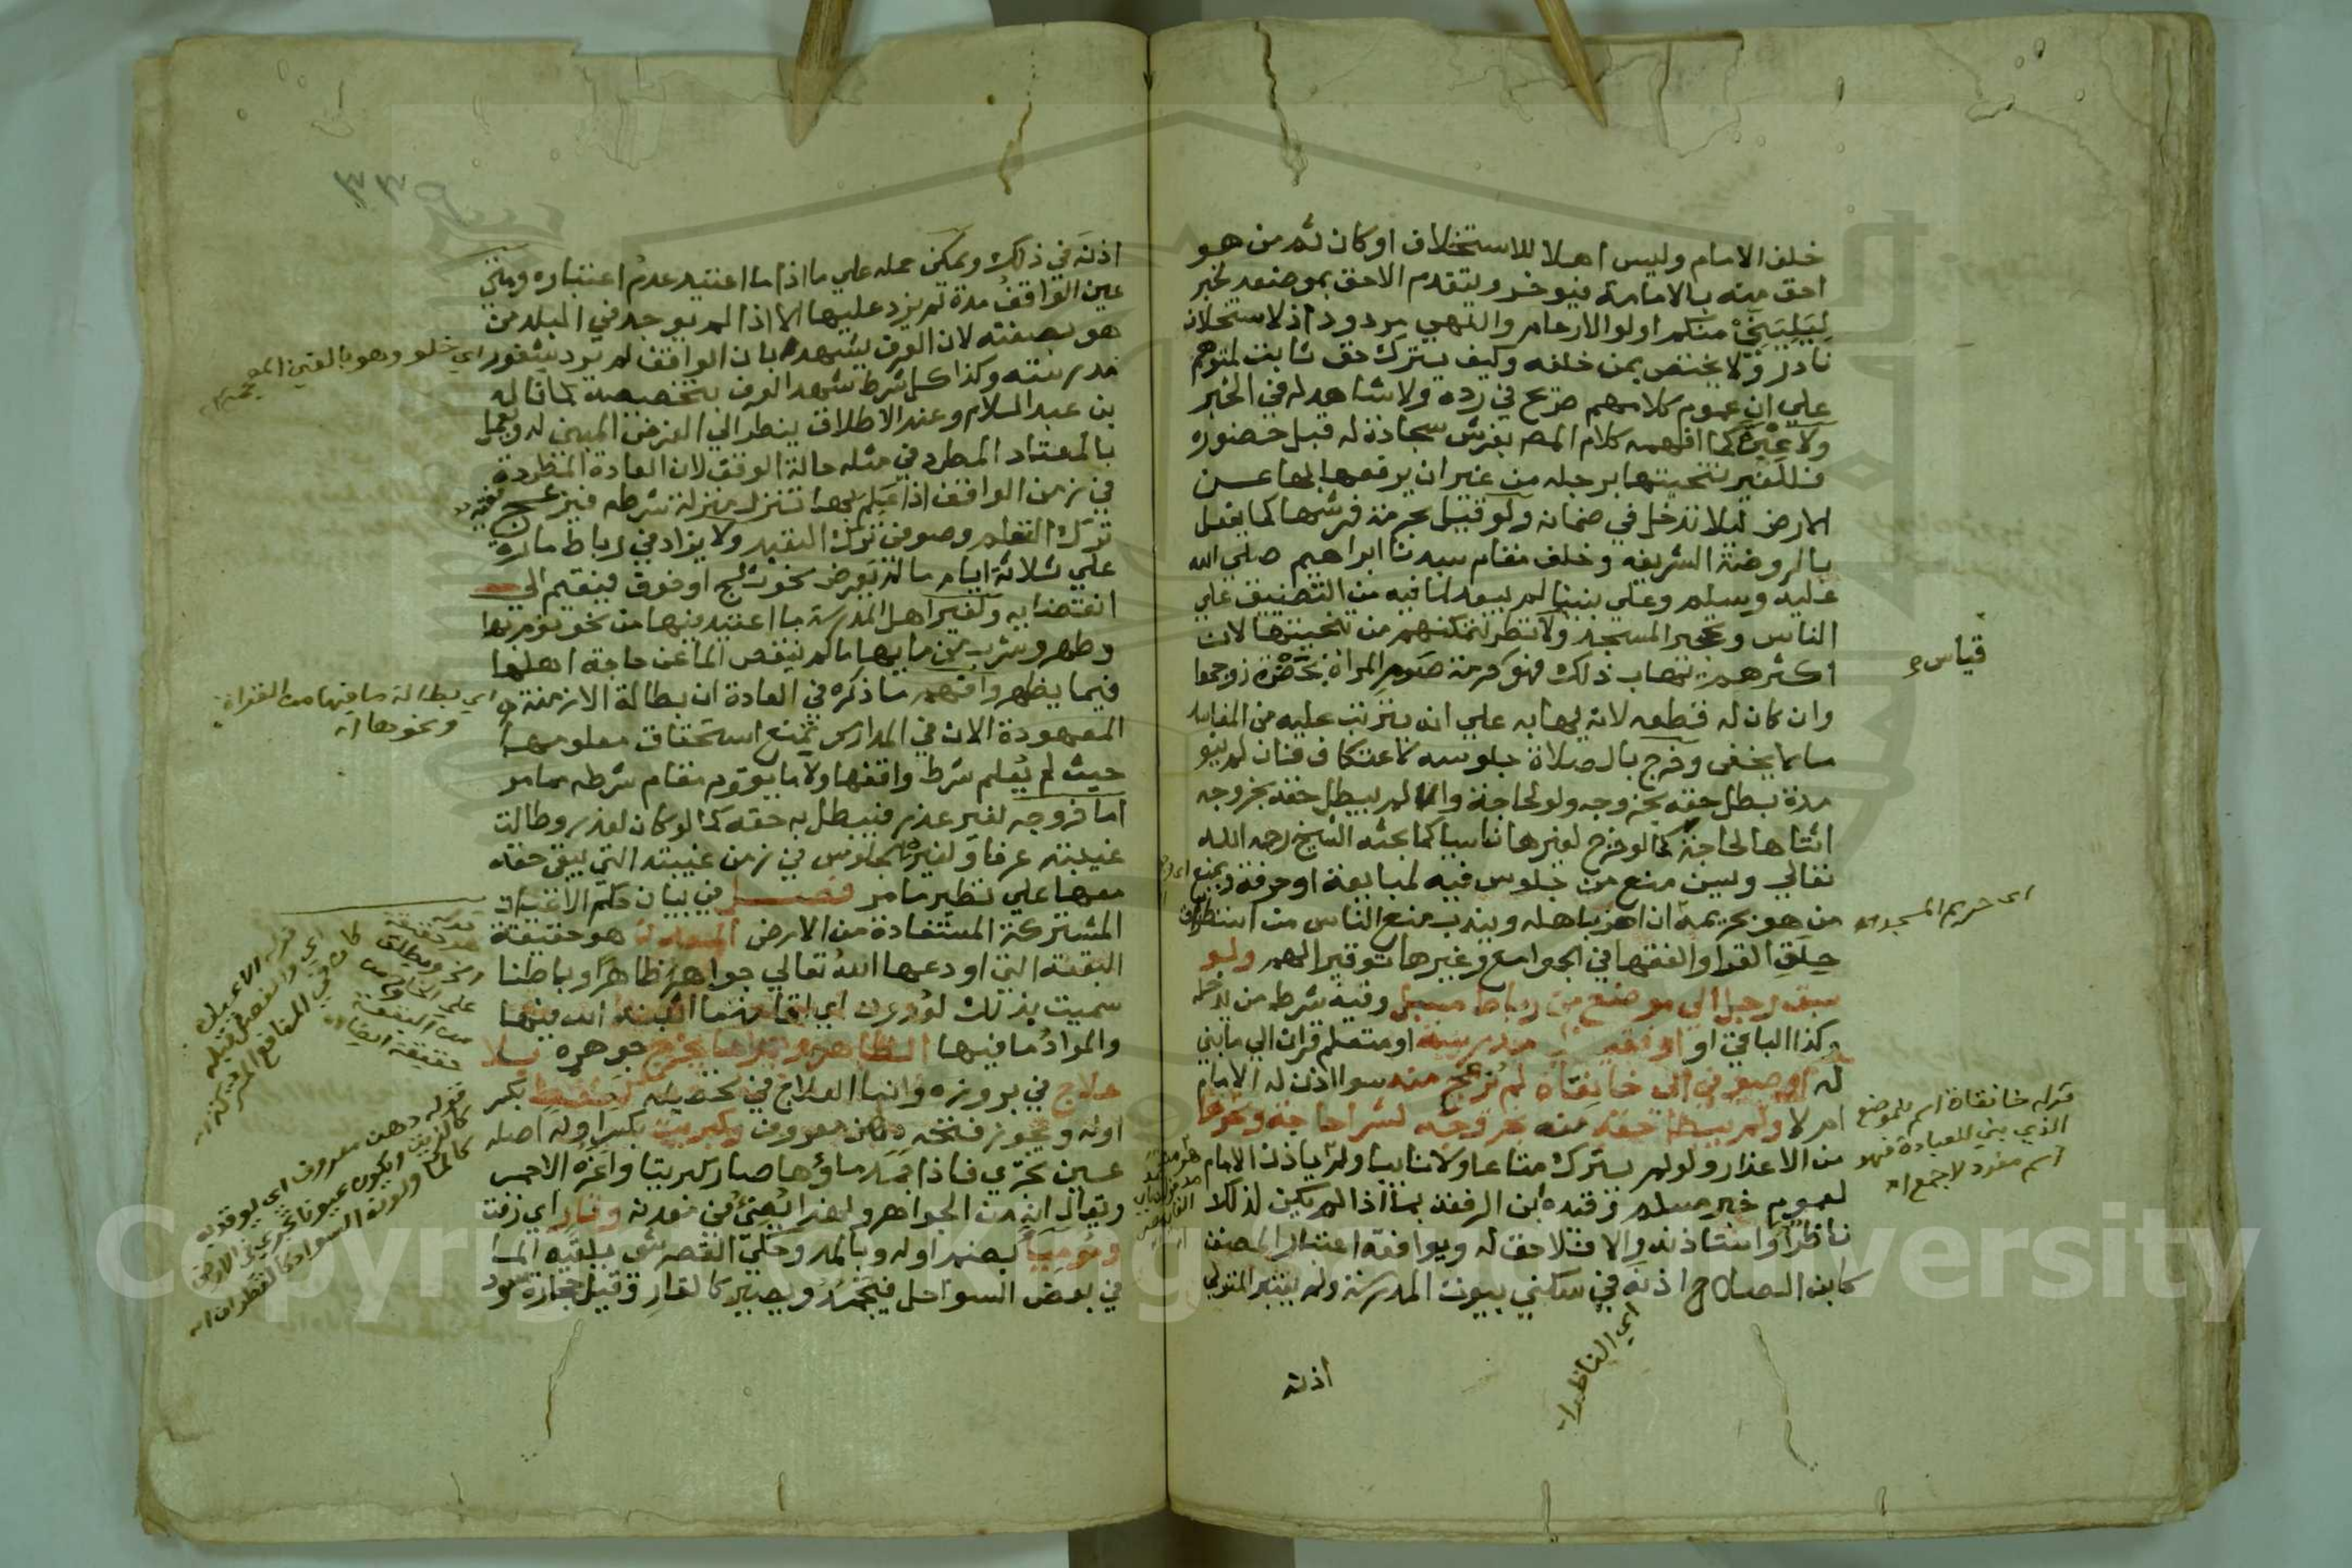 خلف الامام وليس اهلا للاستخلاف او كان ثم من هو
احق منه بالامامة فيوخر ويتقدم الاحق بموضعه لخبر
ليليني منكم اولوا الارحام والنهي مردود اذ لاستخلاف
نادر ولا يختص بمن خلفه وكيف يترك حق ثابت لمتوهم
علي ان عموم كلامهم صريح في رده ولا شاهد له في الخبر
ولا عبرة كما افهمه كلام المص بفرش سجادة له قبل حضوره
فللغير تنحيتها برجله من غير ان يرفعها بها عن
الارض ليلا تدخل في ضمانه ولو قيل بحرمة فرشها كما يفعل
بالروضة الشريفه وخلف مقام سيدنا ابراهيم صلي الله
عليه وسلم وعلي نبينا لم يبعد لما فيه من التضييق علي
الناس وتحجير المسجد ولا نظر لتمكنهم من تنحيتها لان
اكثرهم يهاب ذلك فهو كحرمة صوم المراة بحضرة زوجها
وان كان له قطعه لانه يهابه علي انه يترتب عليه من المفاسد
ما لا يخفي وخرج بالصلاة جلوسه لاعتكاف فان لم ينو
مدة بطل حقه بخروجه ولو لحاجة والا لم يبطل حقه بخروجه
اثناها لحاجة كما لو خرج لغيرها ناسيا كما بحثه الشيخ رحمه الله
تعالي ويسن منع من جلس فيه لمبايعة او حرفة ويمنع
من هو بحريمه ان اضر باهله ويندب منع الناس من استطراق
حلق القرا والفقها في الجوامع وغيرها توقيرا لهم ولو
سبق رجل الي موضع من رباط مسبل وفيه شرط من يدخله
وكذا الباقي او فقيه الي مدرسة او متعلم قران الي ما بني
له او صوفي الي خانقاه لم يزعج منه سوا اذن له الامام
ام لا ولم يبطل حقه منه بخروجه لشرا حاجة ونحوها
من الاعذار ولو لم يترك متاعا ولا نايبا ولم ياذن الامام
لعموم خبر مسلم وقيده ابن الرفعة بما اذا لم يكن لذلك
ناظر او استاذنه والا فلا حق له ويوافقه اعتبار المصنف
كابن الصلاح اذنه في سكني بيوت المدرسة ولم يعتبر المتولي
اذنه
قياس
اي حريم المسجد اه
قوله خانقاة اسم للموضع
الذي بني للعبادة فهو
اسم مفرد لا جمع اه
اي الناظر اه
٣٣٥
اذنه في ذلك ويمكن حمله علي ما اذا ما اعتيد عدم اعتباره ومتي
عين الواقف مدة لم يزد عليها الا اذا لم يوجد في البلد من
هو بصفته لان العرف يشهد بان الواقف لم يرد شغور
مدرسته وكذا كل شرط شهد العرف بتخصيصه كما قاله
بن عبد السلام وعند الاطلاق ينظر الي الغرض المبني له ويعمل
بالمعتاد المطرد في مثله حالة الوقف لان العادة المطردة
في زمن الواقف اذا علم بها تنزل منزلة شرطه فيزعج
ترك التعلم وصوفي ترك التعبد ولا يزاد في رباط مارة
علي ثلاثة ايام ما لم يعرض نحو ثلج او خوف فيقيم الي
انقضايه ولغير اهل المدرسة ما اعتيد فيها من نحو نوم بها
وطهر وشرب من مايها ما لم ينقص الما عن حاجة اهلها
فيما يظهر وافهم ما ذكره في العادة ان بطالة الازمنة
المعهودة الان في المدارس تمنع استحقاق معلومها
حيث لم يعلم شرط واقفها ولا ما يقوم مقام شرطه مما مر
اما خروجه لغير عذر فيبطل به حقه كما لو كان لعذر وطالت
غيبته عرفا ولغيره الجلوس في زمن غيبته التي يبقي حقه
معها علي نظير ما مر فصل في بيان حكم الاعيان
المشتركة المستفادة من الارض المعدن هو حقيقة
البقعة التي اودعها الله تعالي جواهر ظاهرا وباطنا
سميت بذلك لعدون اي اقامة ما اثبته الله فيها
والمراد ما فيها الظاهر وهو ما يخرج جوهره بلا
علاج في بروزه وانما العلاج في تحصيله كنفط بكسر
اوله ويجوز فتحه دهن معروف وكبريت بكسر اوله اصله
عين تجري فاذا جمد ماؤها صار كبريتا واعزه الاحمر
ويقال انه من الجواهر ولهذا يضيء في معدنه وقار اي زفت
وموميا بضم اوله وبالمد وحكي القصر شي يلقيه الما
في بعض السواحل فيجمد ويصير كالقار وقيل حجارة سود
اي خلو وهو بالغين المعجمة
اي بطالة ما فيها من القراة
ونحوها اه
قوله دهن معروف اي يوقد به
كالزيت ويكون عيونا تجري في الارض
كالما ولونه السواد كالقطران اه